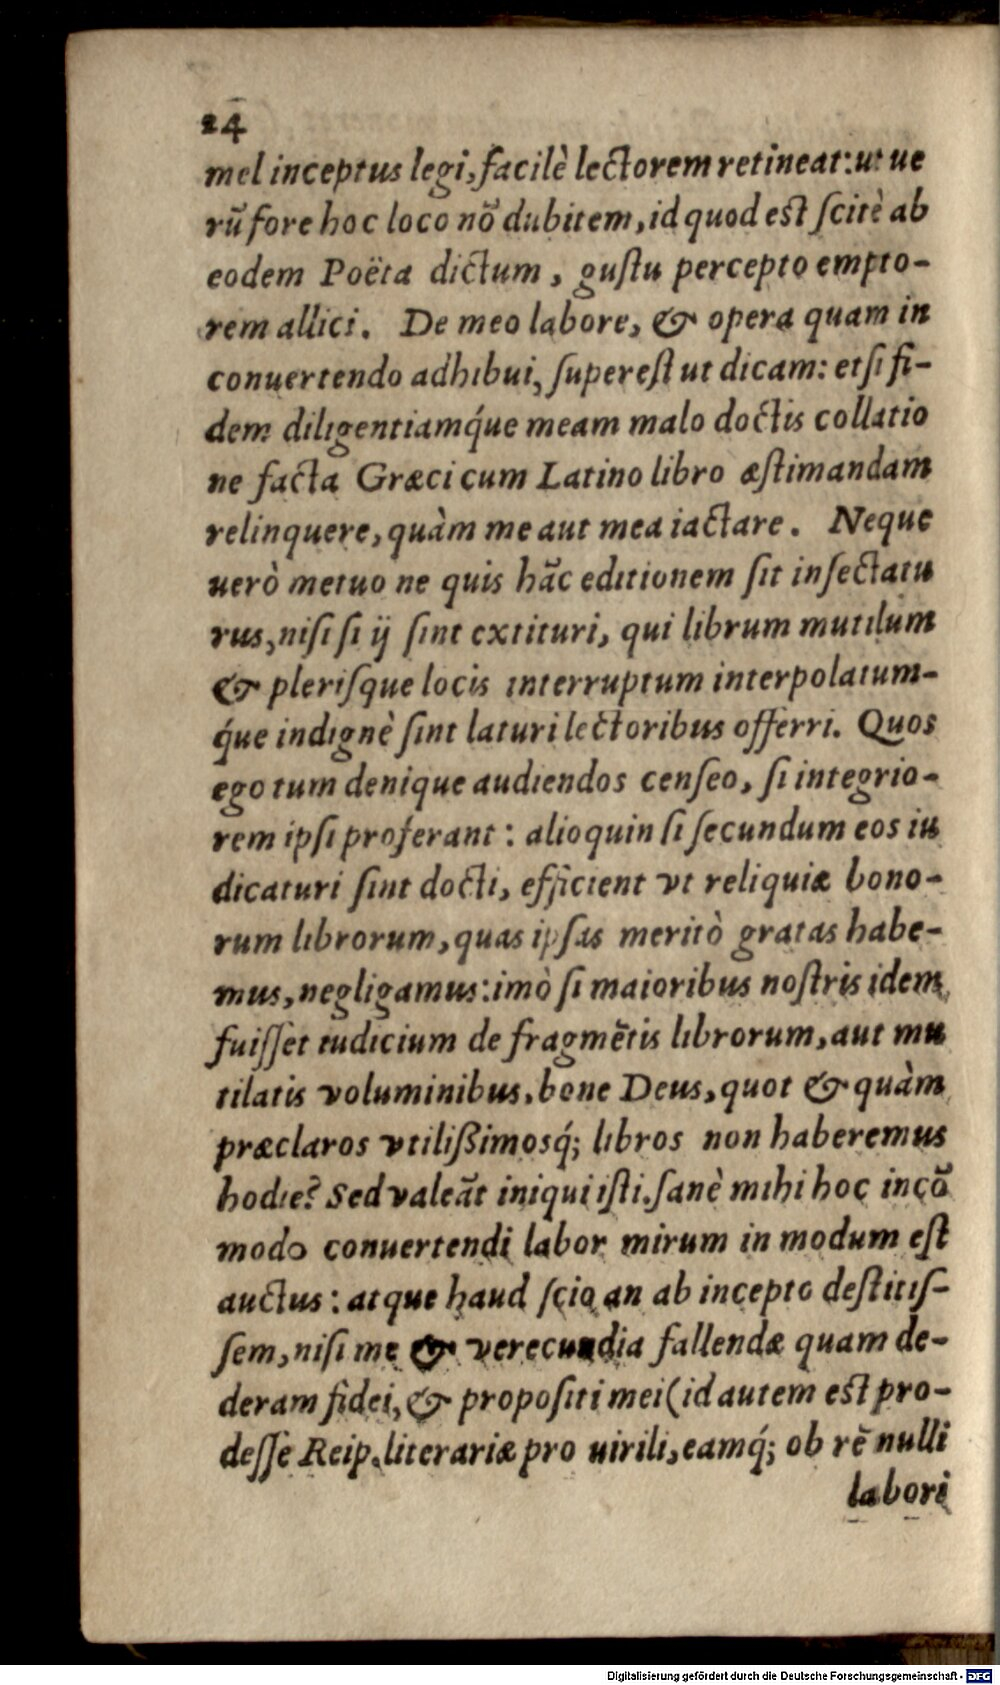 24
mel inceptus legi, facilè lectorem retineat: ut ue
rũ fore hoc loco nõ dubitem, id quod est ſcitè ab
eodem Poëta dictum, guſtu percepto empto-
rem allici. De meo labore, & opera quam in
conuertendo adhibui, ſupereſt ut dicam: etſi fi-
dem diligentiamq́ue meam malo doctis collatio
ne facta Græci cum Latino libro æſtimandam
relinquere, quàm me aut mea iactare. Neque
uerò metuo ne quis hãc editionem ſit inſectatu
rus, niſi ſi ij ſint extituri, qui librum mutilum
& pleriſque locis interruptum interpolatum-
q́ue indignè ſint laturi lectoribus offerri. Quos
ego tum denique audiendos cenſeo, ſi integrio-
rem ipſi proferant: alioquin ſi ſecundum eos iu
dicaturi ſint docti, efficient vt reliquiæ bono-
rum librorum, quas ipſas meritò gratas habe-
mus, negligamus: imò ſi maioribus noſtris idem
fuiſſet iudicium de fragmẽtis librorum, aut mu
tilatis voluminibus, bone Deus, quot & quàm
præclaros vtilißimosq́; libros non haberemus
hodie? Sed valeãt iniqui iſti. ſanè mihi hoc incõ
modo conuertendi labor mirum in modum eſt
auctus: atque haud ſcio an ab incepto deſtitiſ-
ſem, niſi me & verecundia fallendæ quam de-
deram fidei, & propoſiti mei (id autem est pro-
deſſe Reip. literariæ pro uirili, eamq́; ob rẽ nulli
labori
Digitalisierung gefördert durch die Deutsche Forschungsgemeinschaft - DFG